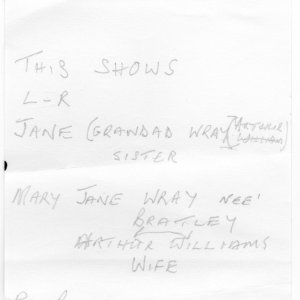 THIS SHOWS
L-R
JANE (GRANDAD WRAY (ARTHUR) WILLIAM)
SISTER
MARY JANE WRAY NEE'
BRATLEY
ARTHUR WILLIAMS
WIFE